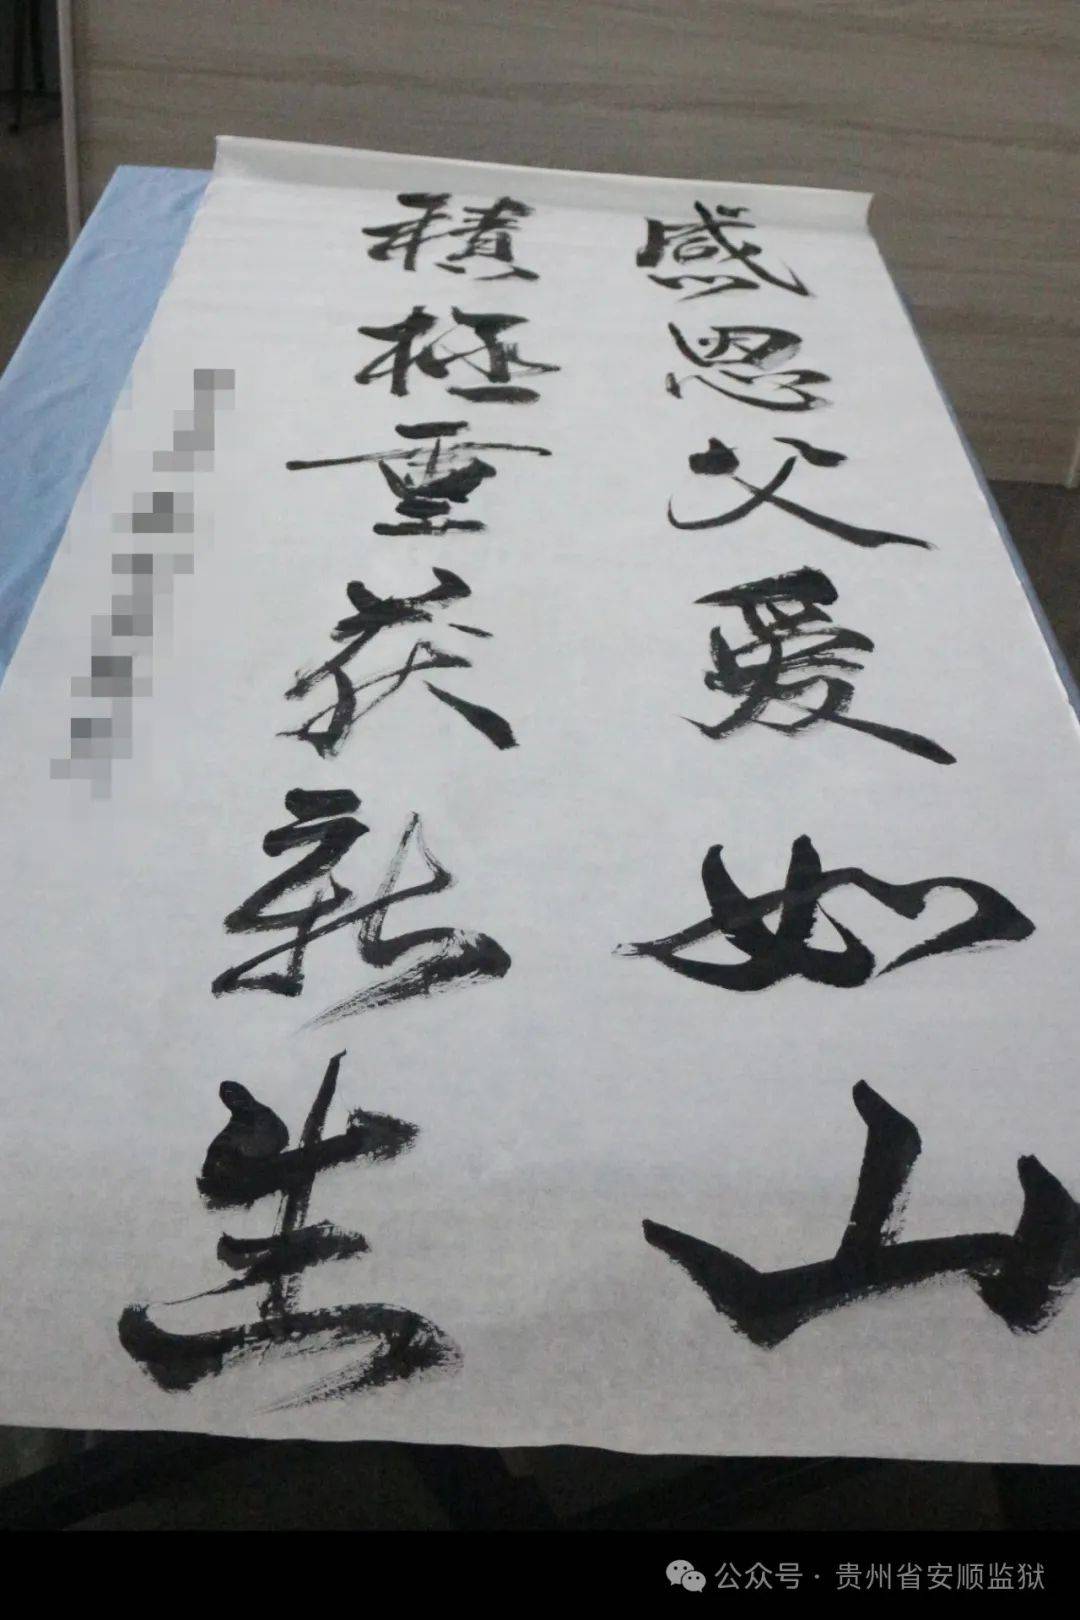 感恩父爱如山
積極重获新生
公众号 · 贵州省安顺监狱